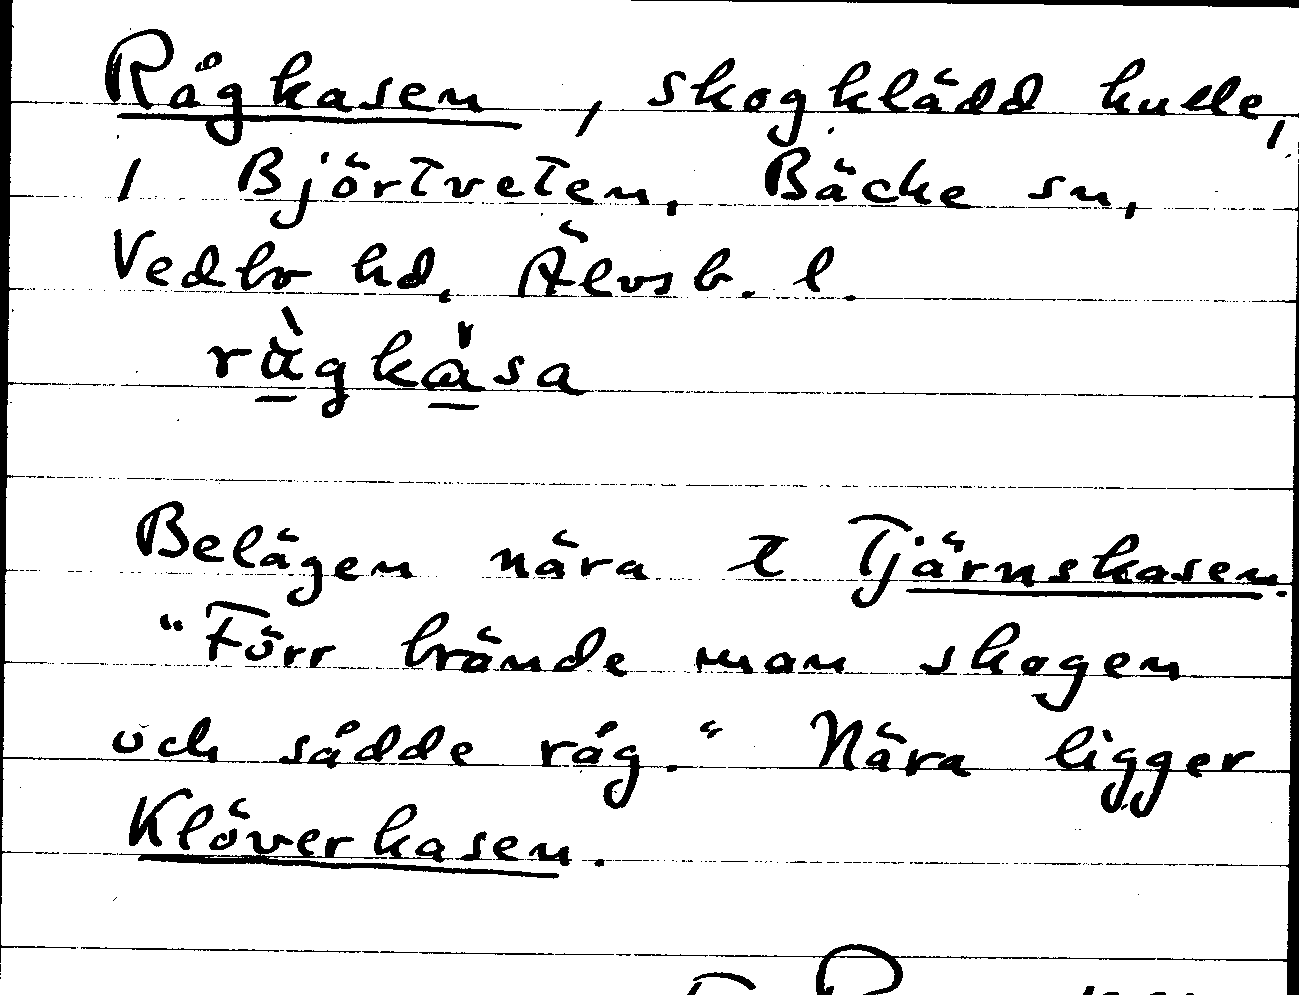 Rågkasen, skogklädd kulle,
i Björtveten, Bäcke sn,
Vedbo hd. Älvsb. l.
Belägen nära t Tjärnskasen.
"Förr brände man skogen
och sådde råg." Nära ligger
Klöverkasen.